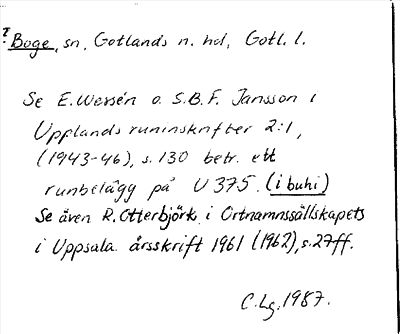 ? Boge, sn, Gotlands n. hd, Gotl. l.
Se E. Wessén o. S.B.F. Jansson i
Upplands runinskrifter 2:1,
(1943-46), s. 130 betr. ett
runbelägg på U 375. (i buhi)
Se även R. Otterbjörk i Ortnamnssällskapets
i Uppsala årsskrift 1961 (1962), s. 27ff.
C. Lg. 1987.